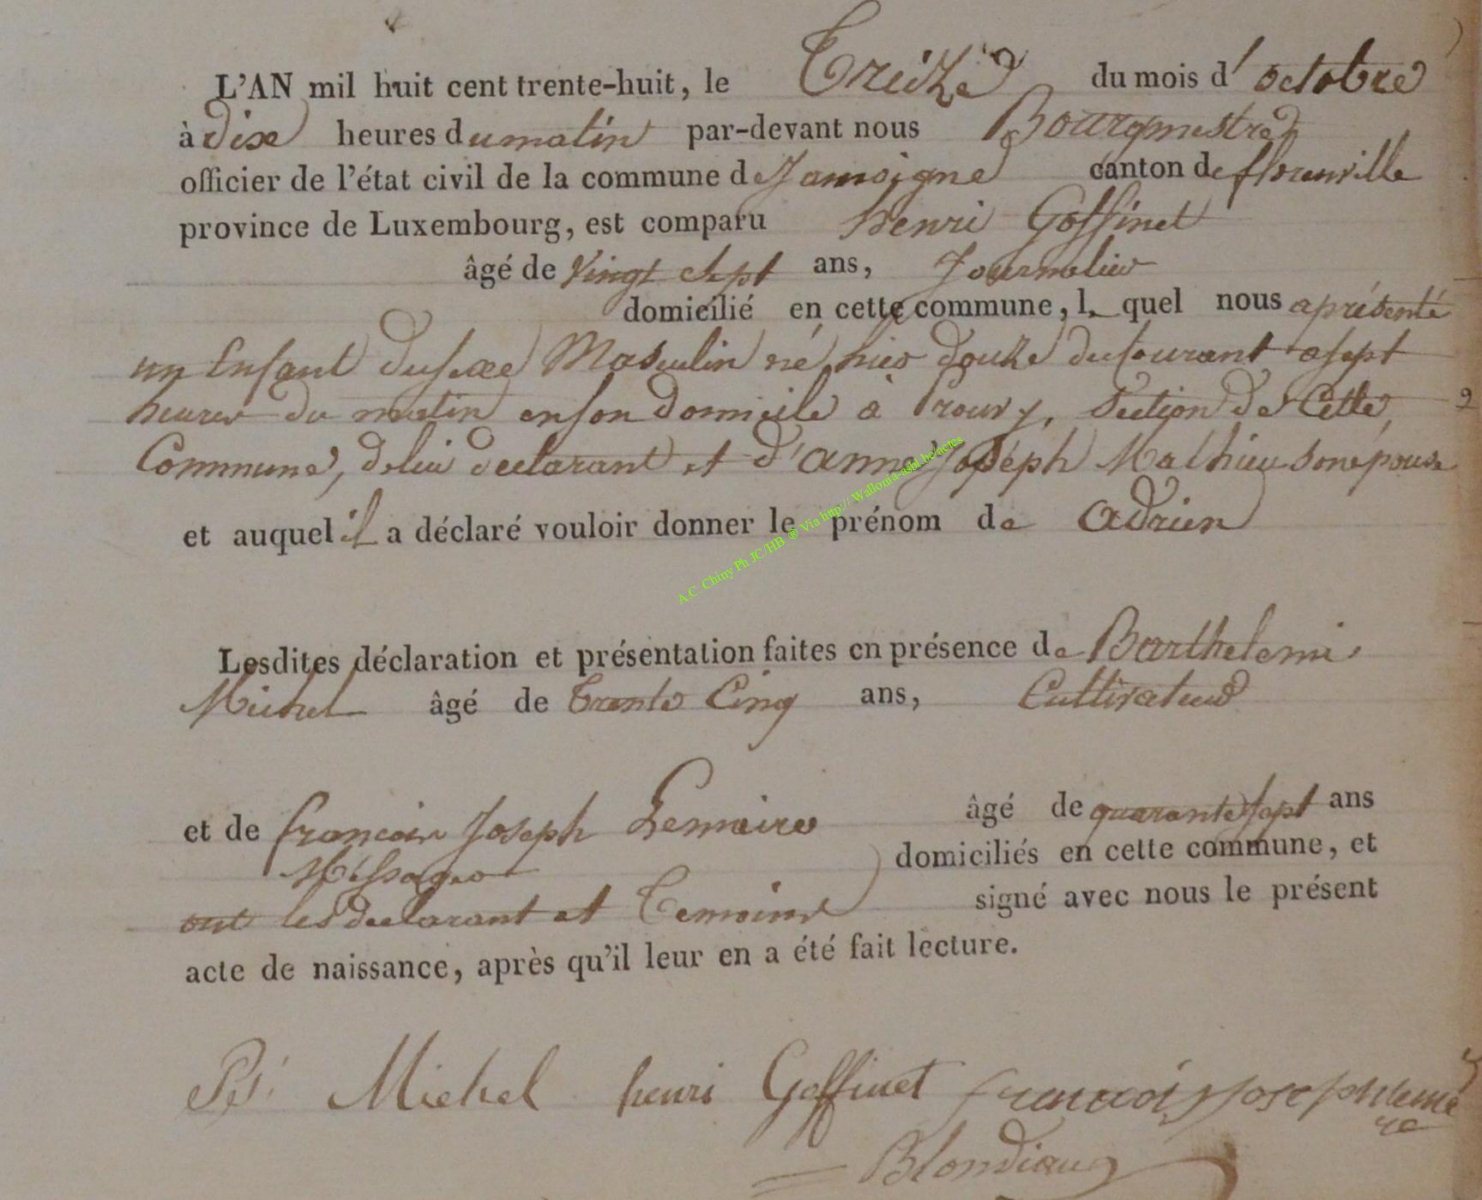 L'AN mil huit cent trente-huit, le Treize du mois d' octobre
à dix heures du matin par-devant nous Bourgmestre
officier de l'état civil de la commune de Jamoigne canton de florenville
province de Luxembourg, est comparu henri Goffinet
âgé de Vingt Sept ans, Journalier
domicilié en cette commune, le quel nous a présenté
un Enfant du sexe Masculin né hier douze du Courant a sept
heures du matin en son domicile à Prouvy, Section de Cette
Commune, de lui declarant et d'anne Joseph Mathieu Son épouse
et auquel il a déclaré vouloir donner le prénom de adrien
A.C Chiny Ph JC/HB @ Via http:// Wallonia-asbl.be/actes
Lesdites déclaration et présentation faites en présence de Barthelemi
Michel âgé de Trente Cinq ans, Cultivateur
et de francois Joseph Lemaire âgé de quarante Sept ans
Messager domiciliés en cette commune, et
ont les declarant et Temoins signé avec nous le présent
acte de naissance, après qu'il leur en a été fait lecture.
Bt. Michel henri Goffinet francois Joseph leme
re
Blondiaux